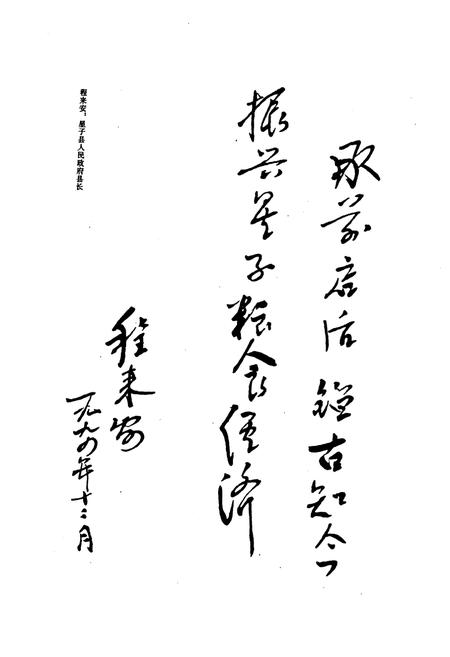 承前启后 鉴古知今
振兴星子粮食经济
程来安
一九九四年十二月
程来安：星子县人民政府县长